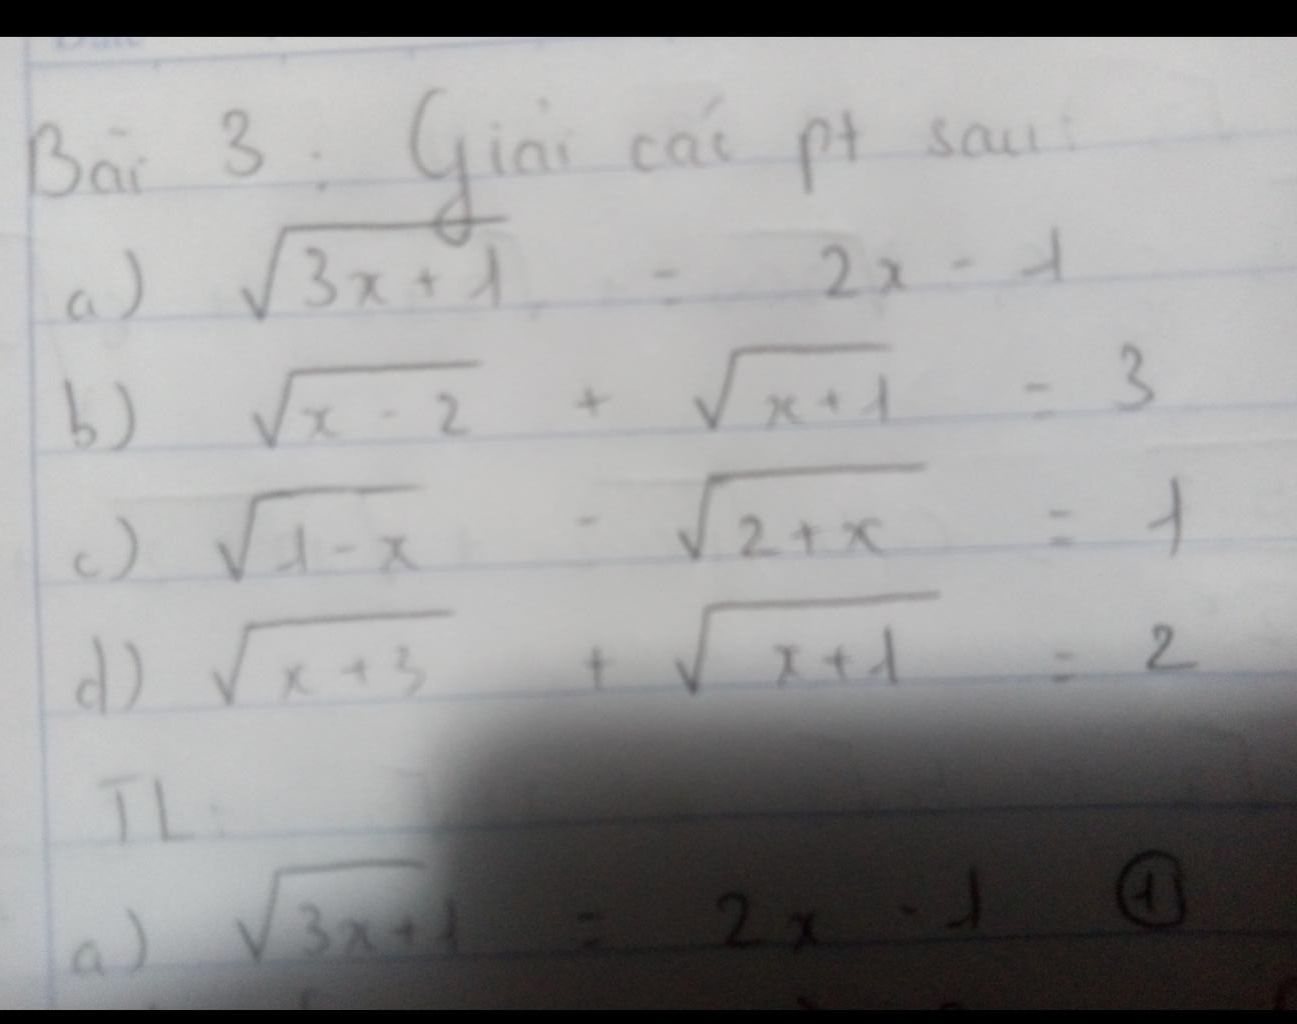 Bài 3: Giải các pt sau:
a) √(3x+1) = 2x - 1
b) √(x-2) + √(x+1) = 3
c) √(1-x) - √(2+x) = 1
d) √(x+3) + √(x+1) = 2
TL:
a) √(3x+1) = 2x - 1 ①